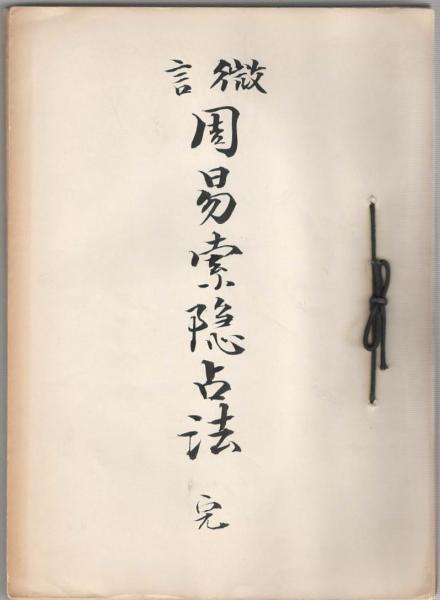 微言
周易索隐占法 完